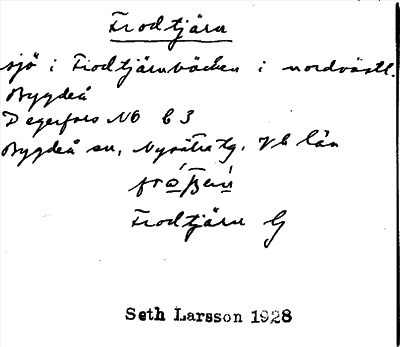 Frodtjärn
sjö i Frodtjärnbäcken i nordvästl.
Bygdeå
Degerfors NO b 3
Bygdeå sn, Nysätra tg, Vb län
Frodtjärn G
Seth Larsson 1928